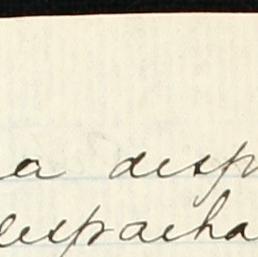 a desp
despacha